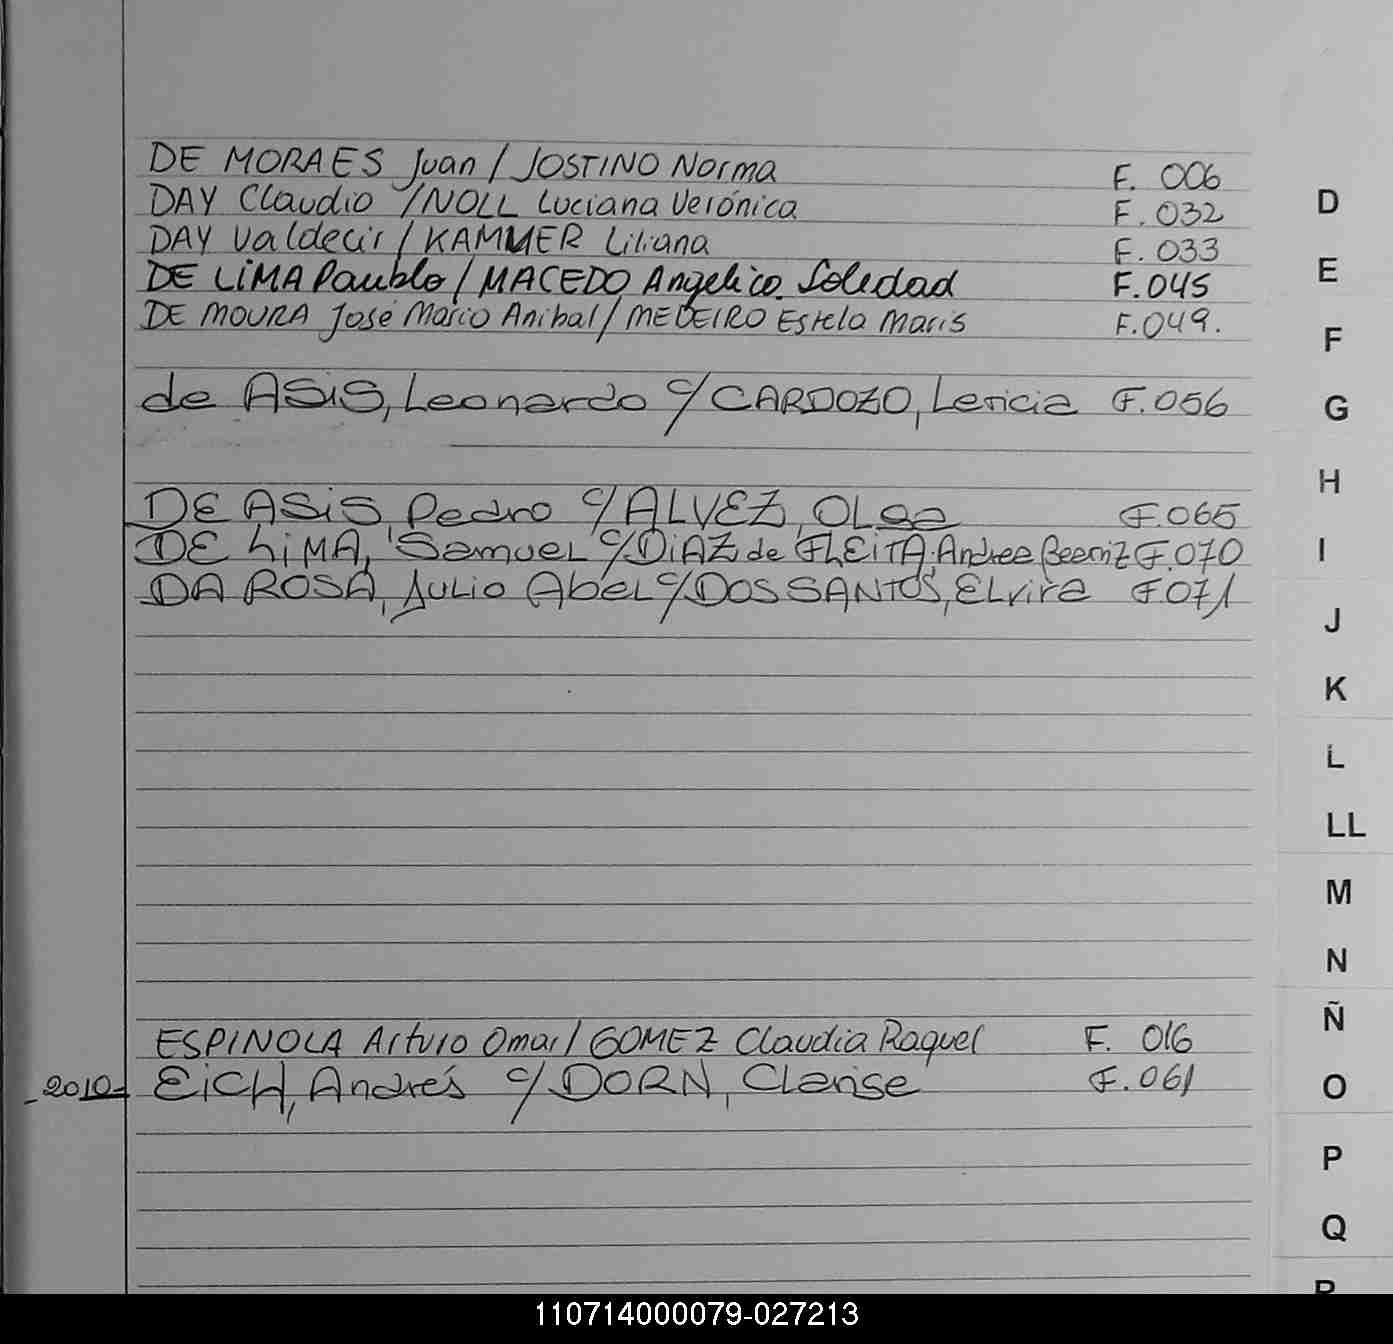 DE MORAES Juan / JOSTINO Norma F. 006
DAY Claudio / NOLL Luciana Verónica F. 032
DAY Valdecir / KAMMER Liliana F. 033
DE LIMA Paublo / MACEDO Angelica Soledad F. 045
DE MOURA José Mario Anibal / MEDEIRO Estela Maris F. 049.
de ASIS, Leonardo c/ CARDOZO, Leticia F. 056
DE ASIS, Pedro c/ ALVEZ, OLga F. 065
DE LIMA, Samuel c/ DIAZ de FLEITA, Andrea Beatriz F. 070
DA ROSA, Julio Abel c/ DOS SANTOS, Elvira F. 071
ESPINOLA Arturo Omar / GOMEZ Claudia Raquel F. 016
- 2010 - EICH, Andrés c/ DORN, Clarise F. 061
D
E
F
G
H
I
J
K
L
LL
M
N
Ñ
O
P
Q
R
110714000079-027213